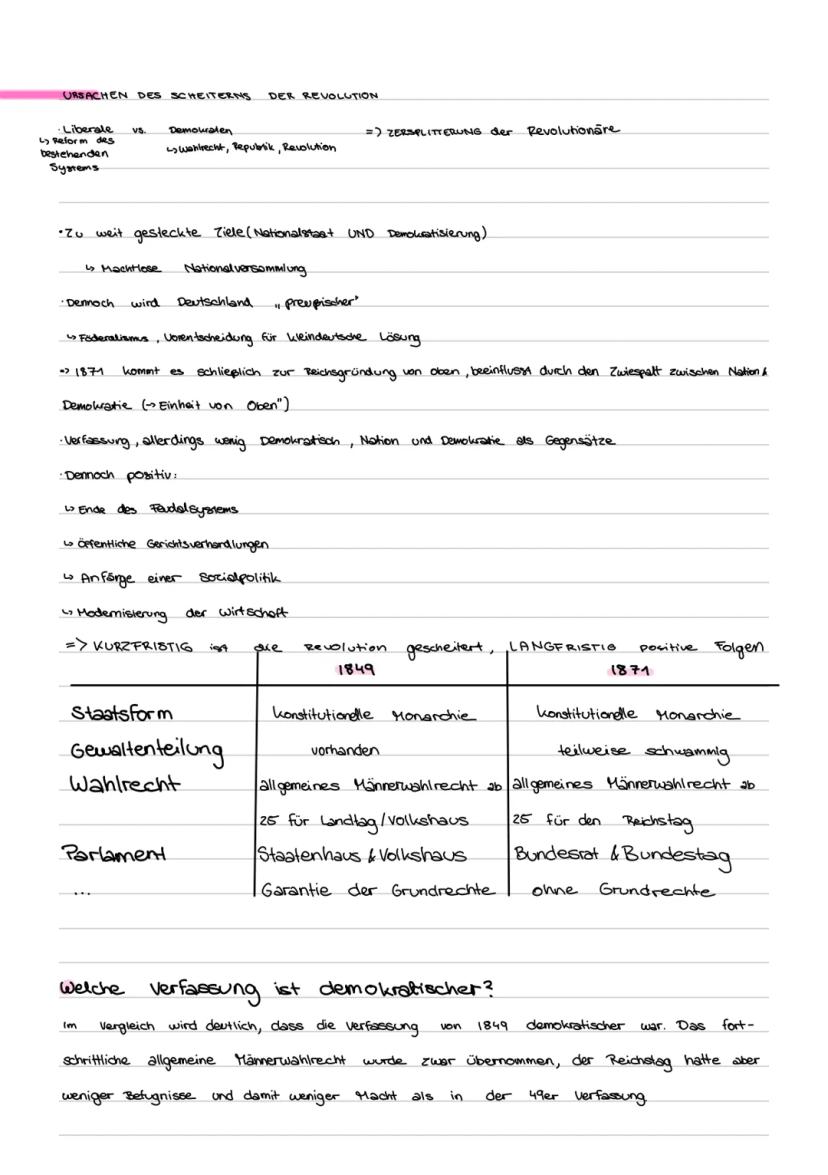 URSACHEN DES SCHEITERNS DER REVOLUTION
· Liberale vs. Demokraten => ZERSPLITTERUNG der Revolutionäre
↳ Reform des bestehenden Systems
↳ Wahlrecht, Republik, Revolution
· Zu weit gesteckte Ziele (Nationalstaat UND Demokratisierung)
↳ Machtlose Nationalversammlung
· Dennoch wird Deutschland „preußischer"
↳ Föderalismus, Vorentscheidung für kleindeutsche Lösung
=> 1871 kommt es schließlich zur Reichsgründung von oben, beeinflusst durch den Zwiespalt zwischen Nation &
Demokratie (→ Einheit von Oben")
· Verfassung, allerdings wenig Demokratisch, Nation und Demokratie als Gegensätze
· Dennoch positiv:
↳ Ende des Feudalsystems
↳ öffentliche Gerichtsverhandlungen
↳ Anfänge einer Socialpolitik
↳ Modernisierung der Wirtschaft
=> KURZFRISTIG ist die Revolution gescheitert, LANGFRISTIG positive Folgen
1849 1871
Staatsform konstitutionelle Monarchie konstitutionelle Monarchie
Gewaltenteilung vorhanden teilweise schwammig
Wahlrecht allgemeines Männerwahlrecht ab allgemeines Männerwahlrecht ab
25 für Landtag/Volkshaus 25 für den Reichstag
Parlament Staatenhaus & Volkshaus Bundesrat & Bundestag
... Garantie der Grundrechte ohne Grundrechte
Welche Verfassung ist demokratischer?
Im Vergleich wird deutlich, dass die Verfassung von 1849 demokratischer war. Das fort-
schrittliche allgemeine Männerwahlrecht wurde zwar übernommen, der Reichstag hatte aber
weniger Befugnisse und damit weniger Macht als in der 49er Verfassung